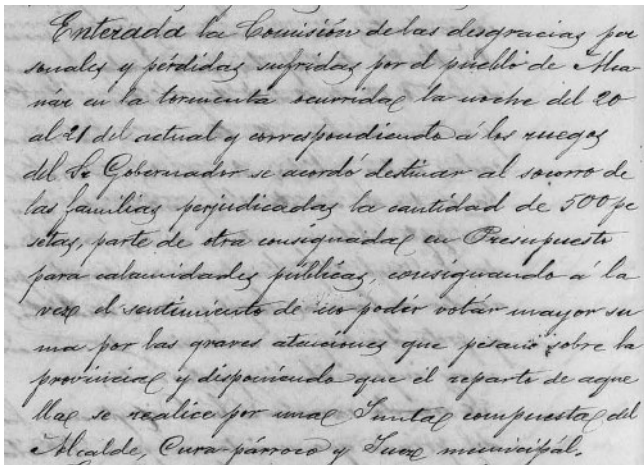 Enterada la Comisión de las desgracias per
sonales y pérdidas sufridas por el pueblo de Alca
nár en la tormenta ocurrida la noche del 20
al 21 del actual y correspondiendo á los ruegos
del Sr Gobernador se acordó destinar al socorro de
las familias perjudicadas la cantidad de 500 pe
setas, parte de otra consignada en Presupuesto
para calamidades públicas, consignando á la
vez el sentimiento de no podér votár mayor su
ma por las graves atenciones que pesan sobre la
provincia y disponiendo que el reparto de aque
lla se realice por una Junta compuesta del
Alcalde, Cura-párroco y Juez municipál.